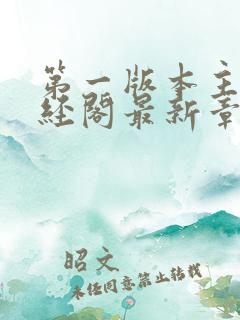 第一版本主
经阁最新章
昭文
未经同意禁止转载